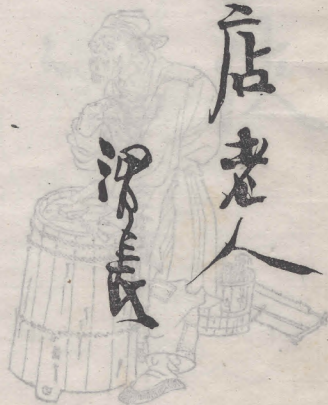 店老人
渭長